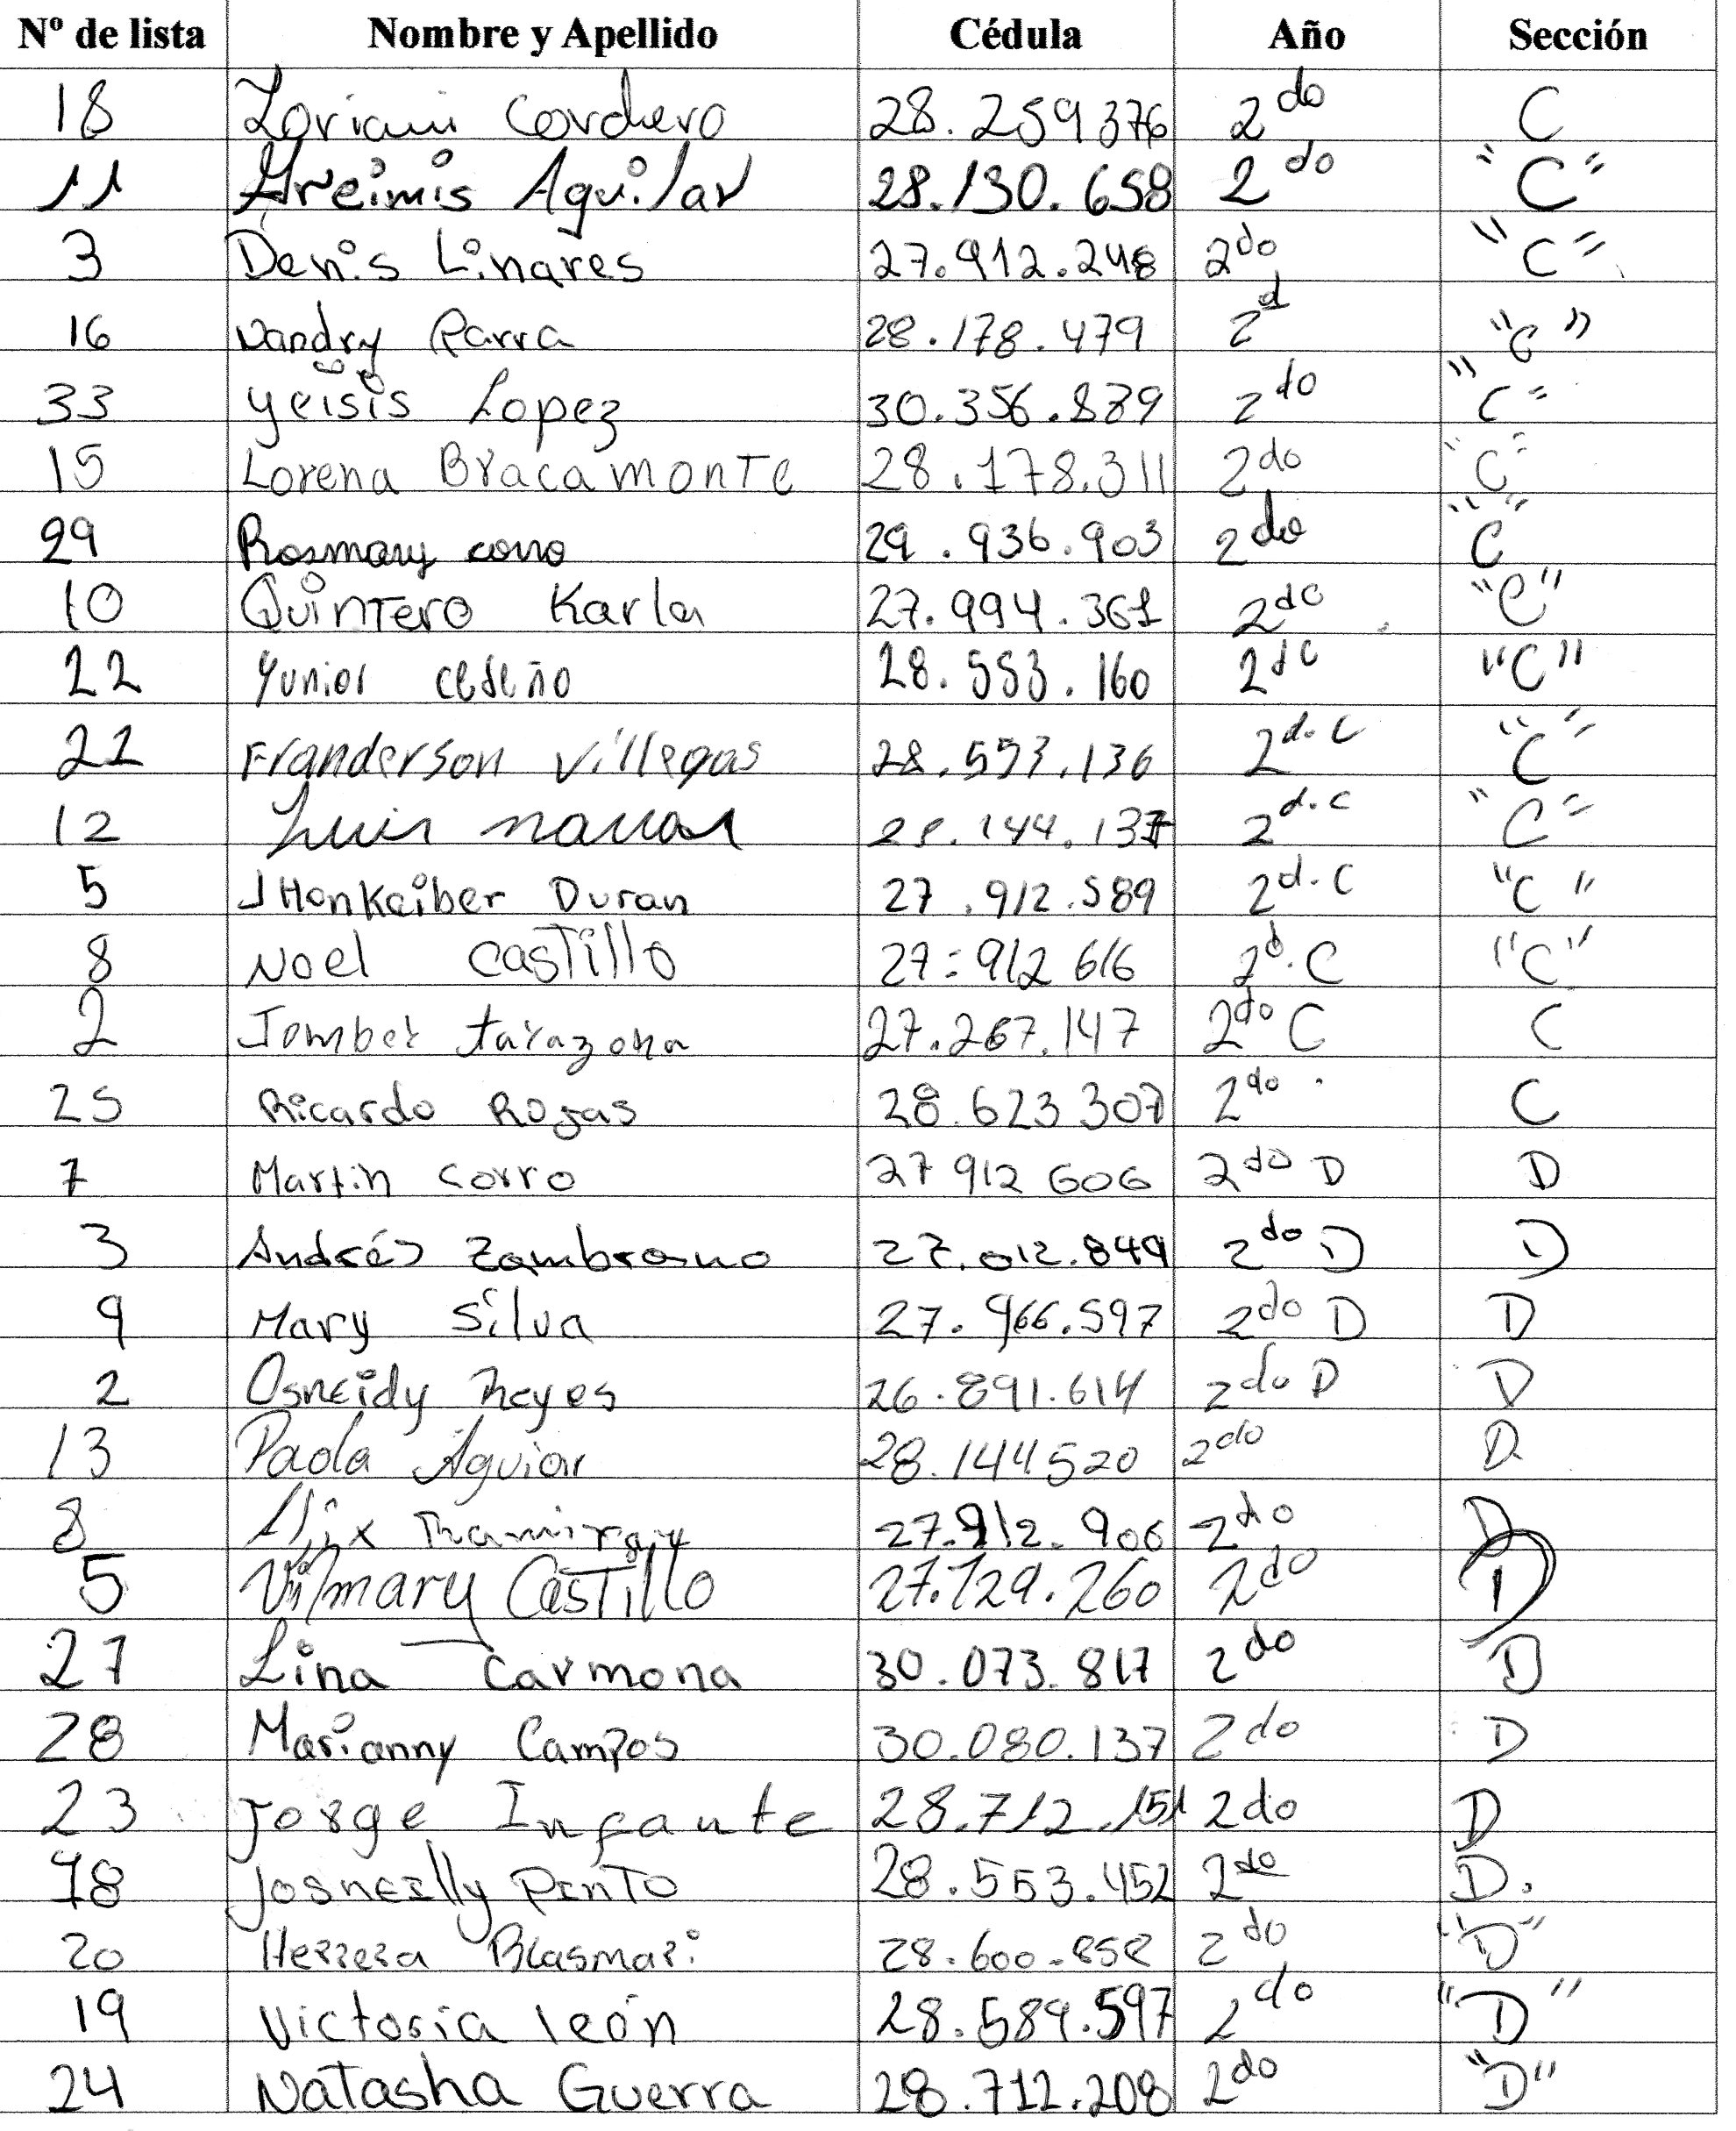 Nº de lista Nombre y Apellido Cédula Año Sección
18 Loriani Cordero 28.259376 2do C
11 Greimis Aguilar 28.130.658 2do "C"
3 Denis Linares 27.912.248 2do "C"
16 Wandry Parra 28.178.479 2d "C"
33 yeisis Lopez 30.356.879 2do "C"
15 Lorena Bracamonte 28.178.311 2do "C"
29 Rosmary corro 29.936.903 2do "C"
10 Quintero Karla 27.994.361 2do "C"
22 Yunior cedeño 28.553.160 2do "C"
21 Franderson villegas 28.593.136 2d.C "C"
12 Luis 28.144.137 2d.C "C"
5 JHonkeiber Duran 27.912.589 2d.C "C"
8 Noel castillo 27.912 616 2d.C "C"
2 Jomber tarazona 27.267.147 2do C C
25 Ricardo Rojas 28.623 307 2do C
7 Martin corro 27 912 606 2do D D
3 Andrés Zambrano 27.012.849 2do D D
9 Mary silva 27.966.597 2do D D
2 Osneidy Reyes 26.891.614 2do D D
13 Paola Aguiar 28.144520 2do D
8 Alix Ramirez 27.912.906 2do D
5 Vilmary Castillo 27.729.260 2do D
27 Lina Carmona 30.073.817 2do D
28 Marianny Campos 30.080.137 2do D
23 Jorge Infante 28.712.151 2do D
18 Josneilly Pinto 28.553.452 2do D.
20 Herrera Blasmari 28.600.858 2do "D"
19 Victoria león 28.589.597 2do "D"
24 Natasha Guerra 28.712.208 2do "D"